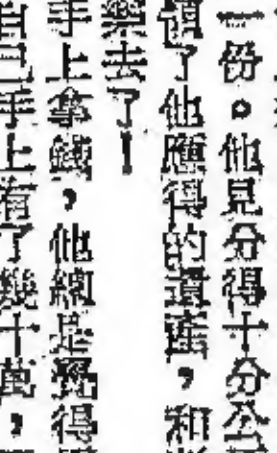 一份。他見分得十分公
領了他應得的遺產，和
樂去了！
手上拿錢，他總是覺得
自己手上有了幾十萬，